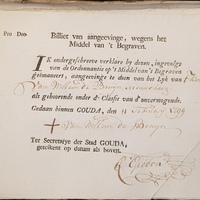 Pro Deo
Billiet van aangeevinge, wegens het
Middel van 't Begraven.
IK ondergeschreve verklare by deezen, ingevolge
van de Ordonnantie op 't Middel van 't Begraven
geëmaneert, aangeevinge te doen van het Lyk van
Van Willem de Bruyn
als gehoorende onder de Classe van d'onvermogende.
Gedaan binnen GOUDA, den 11 February 1799
+ Van Willem de Bruyn
Ter Secretarye der Stad GOUDA,
geteikent op datum als boven.